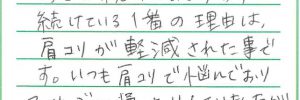 続けている1番の理由は、
肩コリが軽減された事で
す。いつも肩コリで悩んでおり